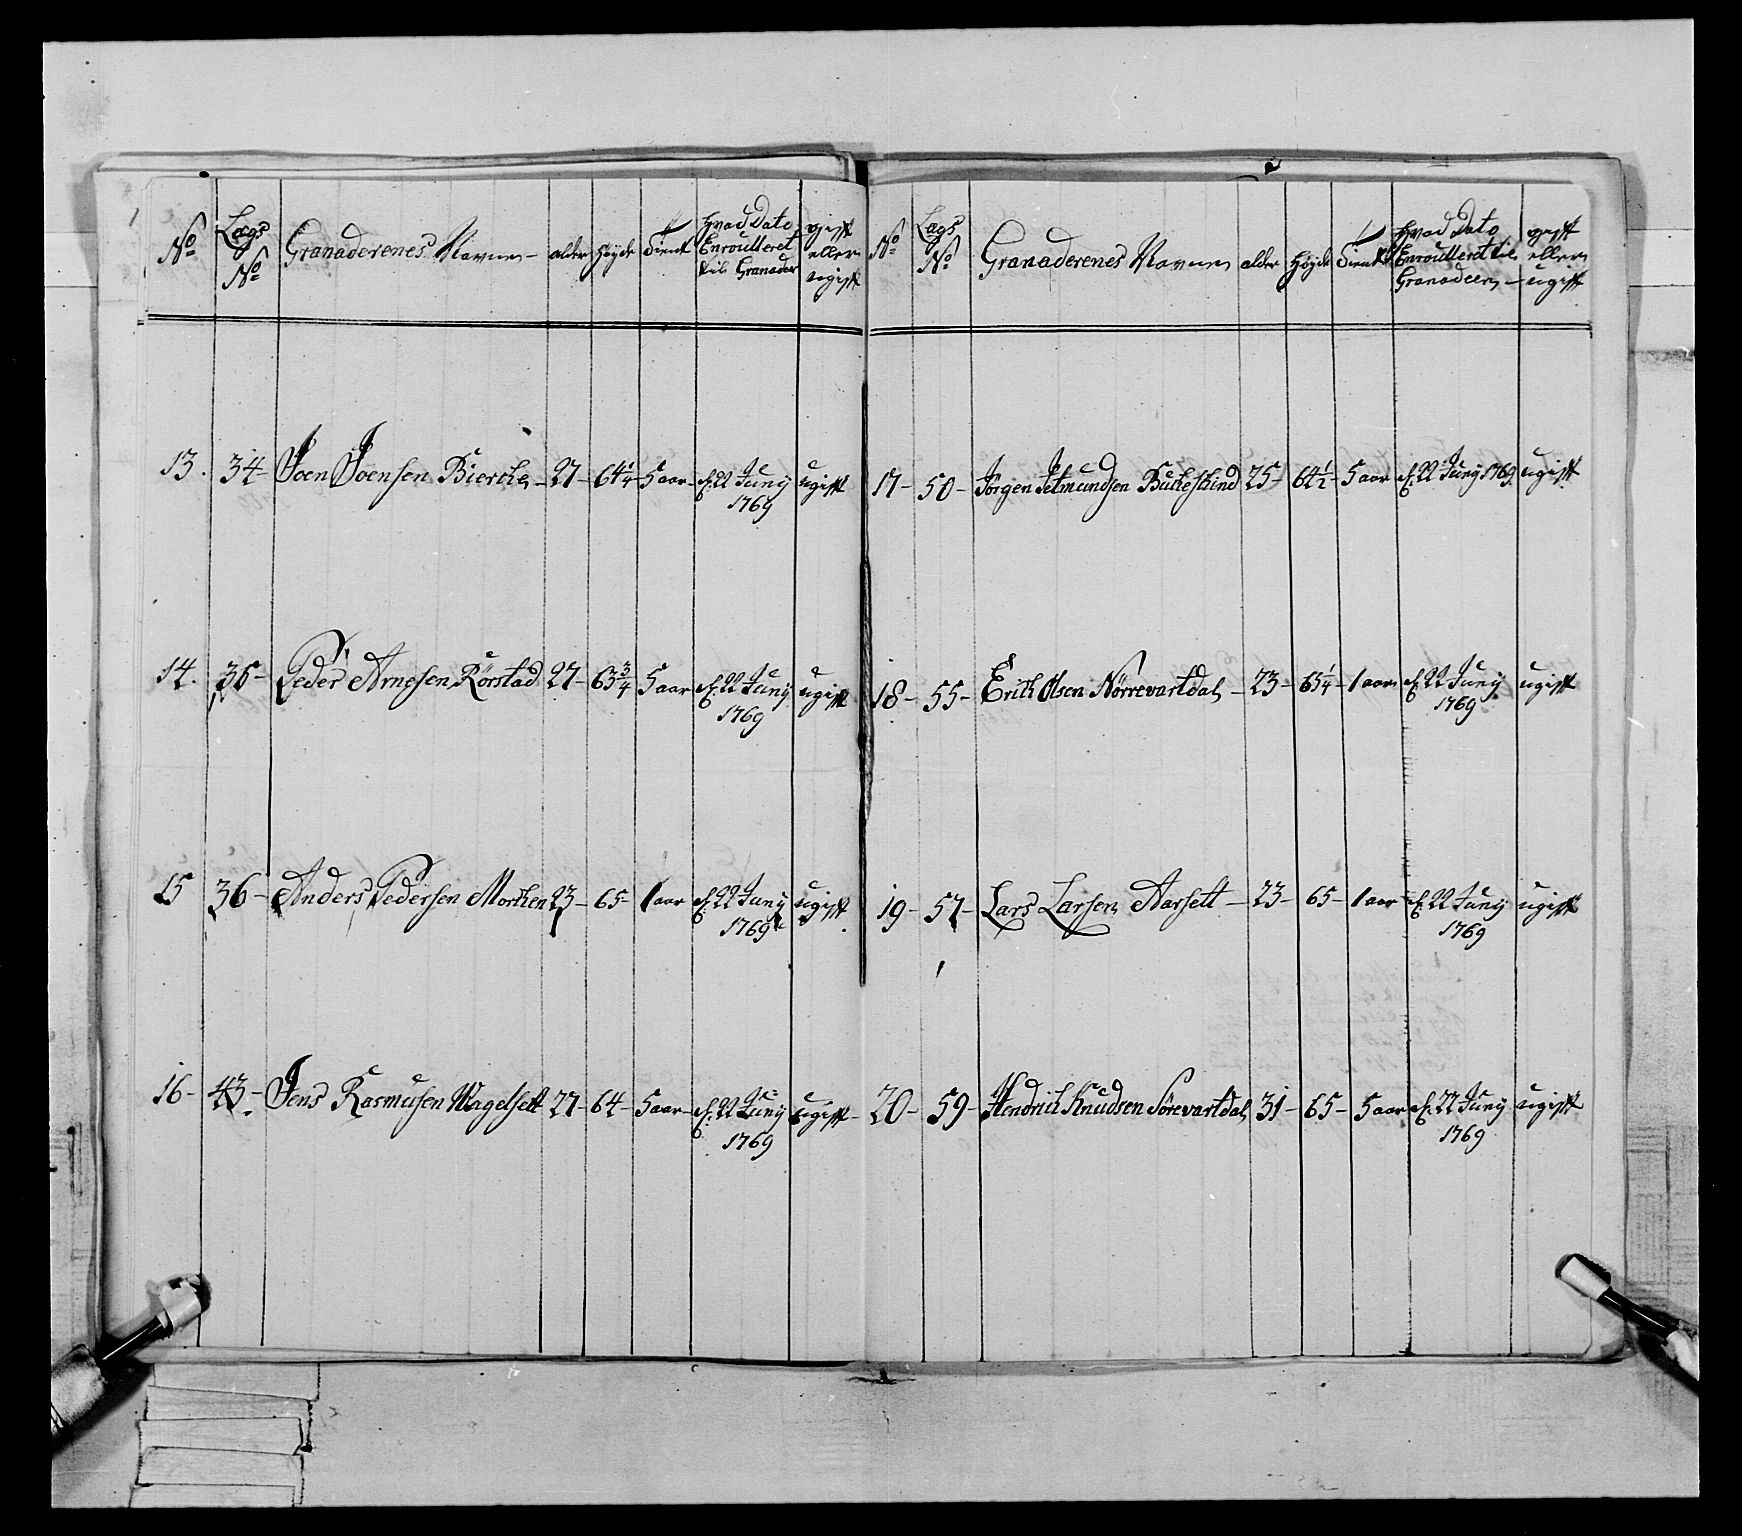 No Lægs No Granaderenes Navne alder Høyde Tient Hvad Dato Enroulleret til Granader gift eller ugift
13. 34 Joen Joensen Biercke 27 64 1/4 5 aar d. 22 Juny 1769 ugift
14. 35 Peder Arnesen Rörstad 27 63 3/4 5 aar d. 22 Juny 1769 ugift
15 36 Anders Pedersen Morken 23 65 1 aar d. 22 Juny 1769 ugift
16 43 Jens Rasmusen Magelsett 27 64 5 aar d. 22 Juny 1769 ugift
No Lægs No Granaderenes Navne alder Høyde Tient Hvad Dato Enroulleret til Granadeer gift eller ugift
17 50 Jörgen Jetmundsen Bukeskind 25 64 1/2 5 aar d. 22 Juny 1769 ugift
18 55 Erich Olsen Nörrevartdal 23 65 1/4 1 aar d. 22 Juny 1769 ugift
19 57 Lars Larsen Aarsett 23 65 1 aar d. 22 Juny 1769 ugift
20 59 Hendrich Knudsen Sörevartdal 31 65 5 aar d. 22 Juny 1769 ugift